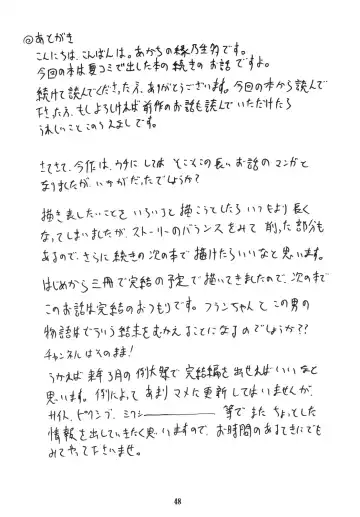 ◎あとがき
こんにちは、こんばんは。あからの縁乃生多です。
今回の本は夏コミで出した本の続きのお話ですよ。
続けて読んでくださった方、ありがとうございます。今回の本から読んで
下さった方、もしよろしければ前作のお話も読んでいただけたら
うれしいことこのうえなしです。
さてさて、今作は、ウチにしてはそこそこの長いお話のマンガと
なりましたが、いかがだったでしょうか?
描き表したいことをいろいろと描こうとしたらいつもより長く
なってしまいましたが、ストーリーのバランスをみて削った部分も
あるので、さらに続きの次の本で描けたらいいなと思います。
はじめから三冊で完結の予定で描いてきましたので、次の本で
このお話は完結のおつもりです。フランちゃんとこの男の
物語はどういう結末をむかえることになるのでしょうか??
チャンネルはそのまま!
うかえば来年3月の例大祭で完結編を出せればいいなと
思います。例によってあまりマメに更新してはいませんが、
サイト、ピクシブ、ミクシー────等でまたちょっとした
情報を出していきたく思いますので、お時間のあるときにでも
みてやって下さいませ。
48